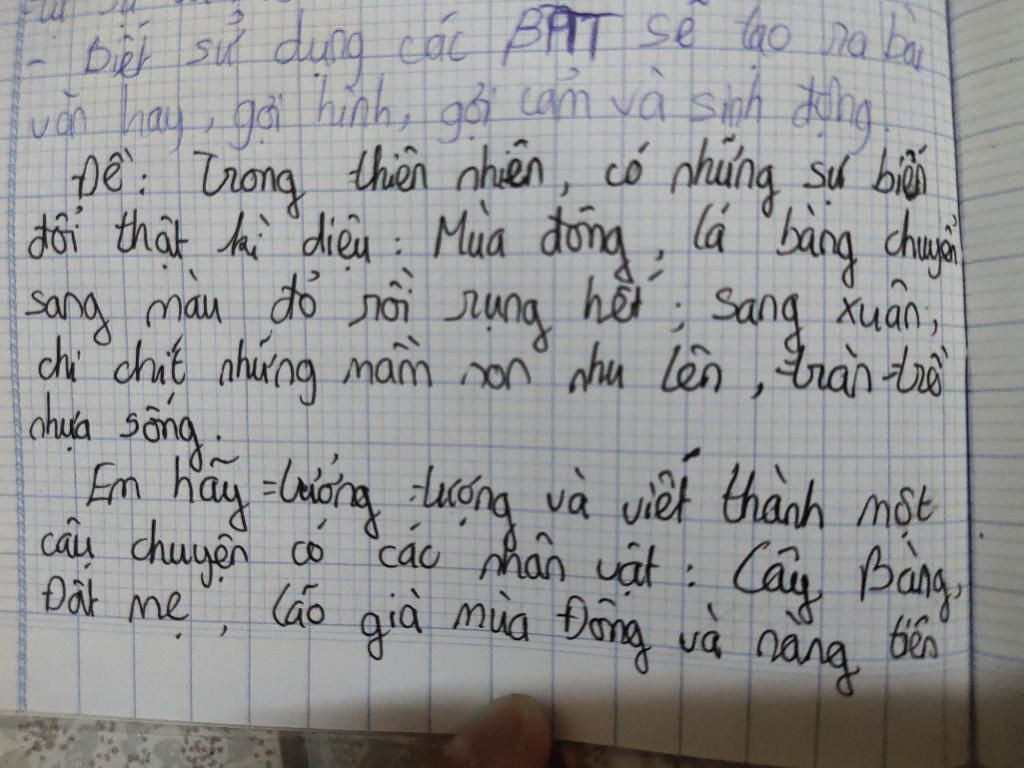 - Biết sử dụng các BPTT sẽ tạo ra bài
văn hay, gợi hình, gợi cảm và sinh động.
Đề: Trong thiên nhiên, có những sự biến
đổi thật kì diệu: Mùa đông, lá bàng chuyển
sang màu đỏ rồi rụng hết; sang xuân,
chi chít những mầm non nhu lên, tràn trề
nhựa sống.
Em hãy tưởng tượng và viết thành một
câu chuyện có các nhân vật: Cây Bàng,
Đất mẹ, lão già mùa Đông và nàng tiên